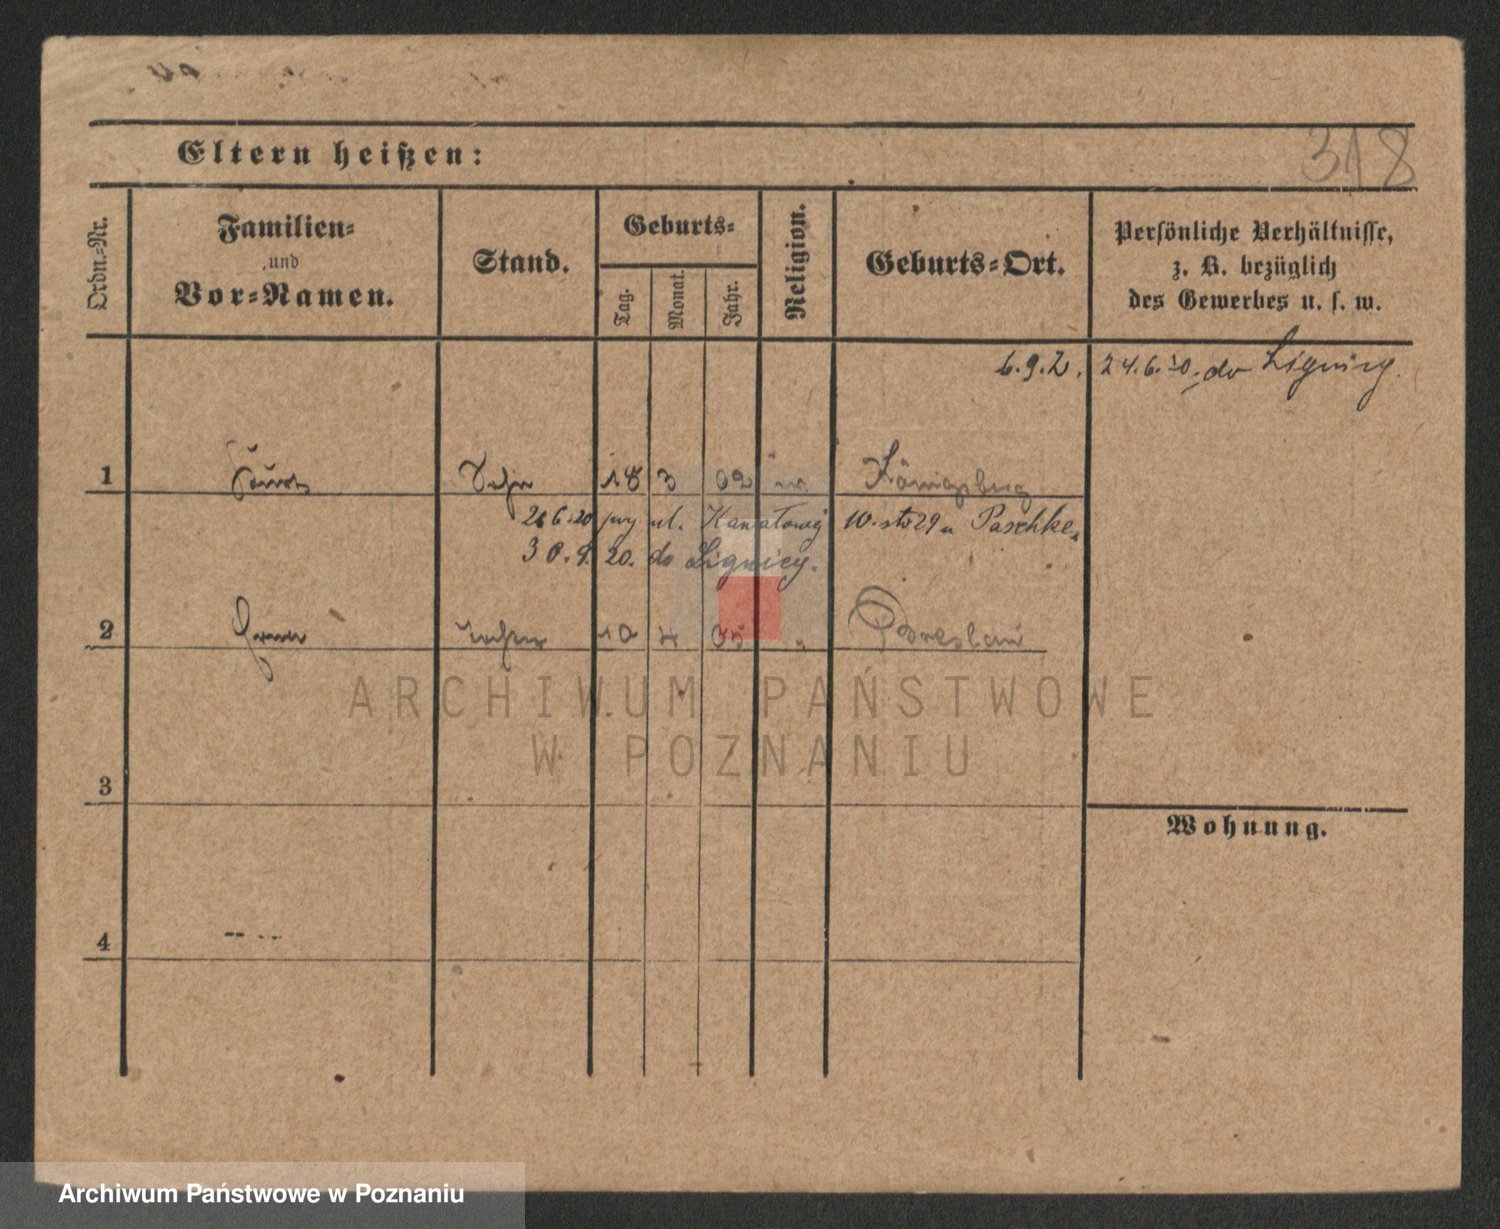 318
Eltern heißen:
Ordn.-Nr.
Familien-
und
Vor-Namen.
Stand.
Geburts-
Tag.
Monat.
Jahr.
Religion.
Geburts-Ort.
Persönliche Verhältnisse,
z. B. bezüglich
des Gewerbes u. s. w.
6.9.2. 24.6.20. do
1 Kurt Sohn 18 3 02 Königsberg
26.6.20 przy ul. Kanałowej 10. u Paschke.
30.9.20. do Lignicy.
2 Tochter 10 4 05 " Breslau
ARCHIWUM PAŃSTWOWE
W POZNANIU
3
Wohnung.
4
Archiwum Państwowe w Poznaniu